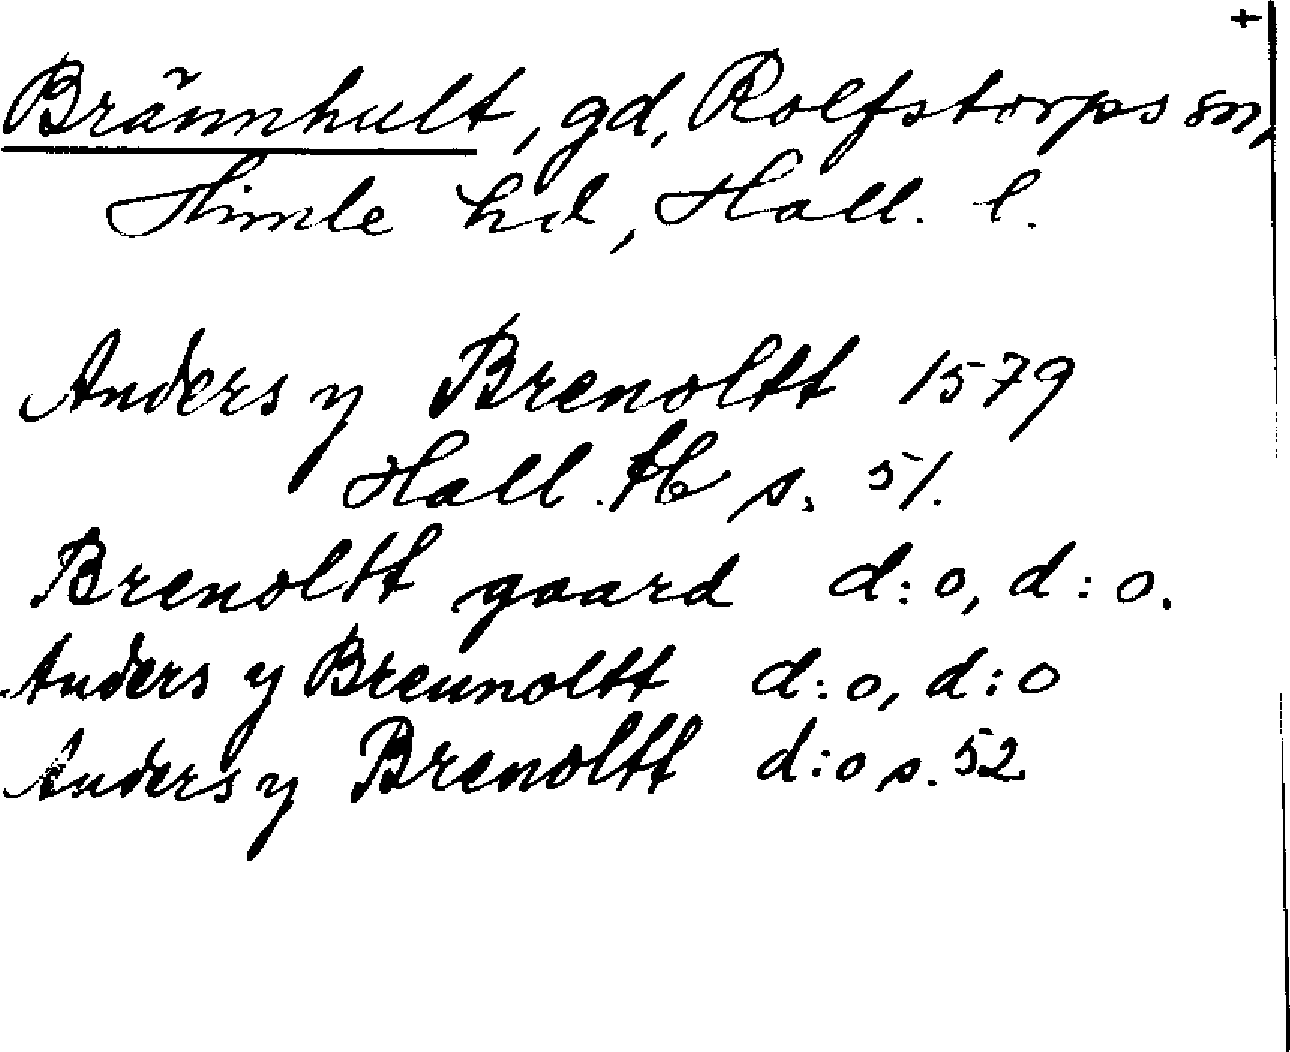 +
Brännhult, gd, Rolfstorps sn,
Himle hd, Hall. l.
Anders y Brenoltt 1579
Hall. s. 51.
Brenoltt gaard d:o, d:o.
Anders y Brennoltt d:o, d:o
Anders y Brenoltt d:o s. 52